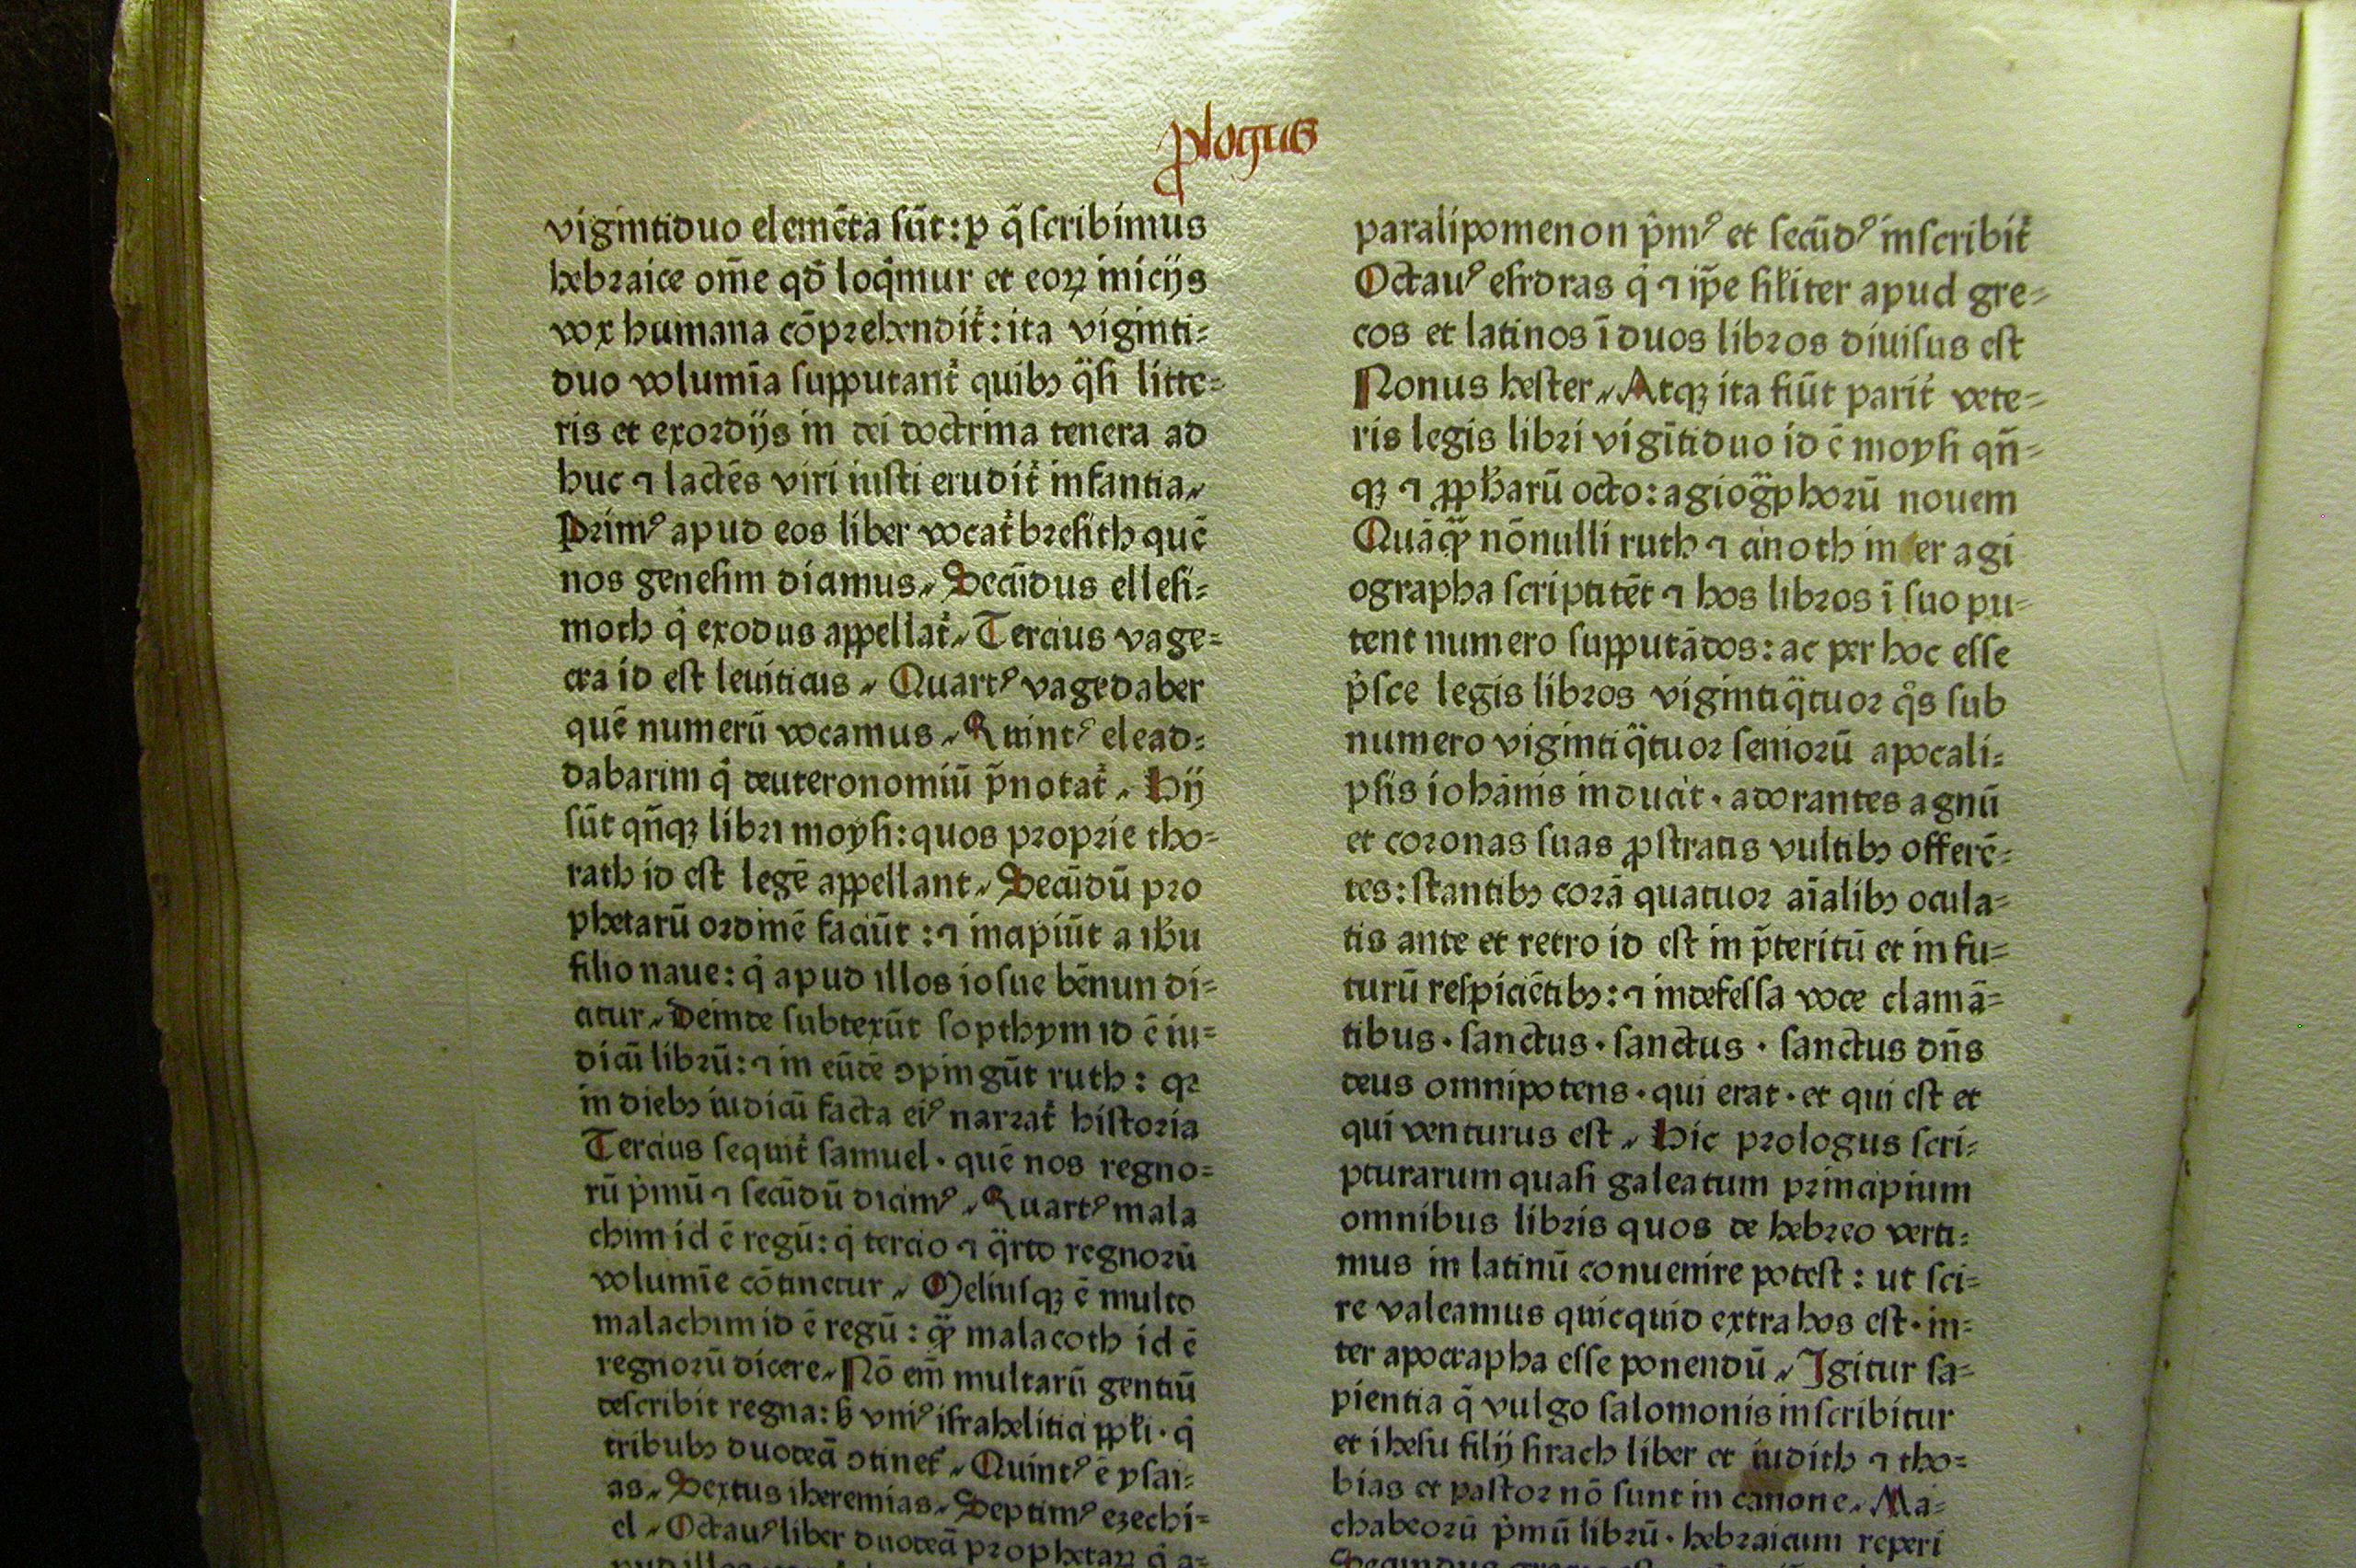 ꝓlogus
vigintiduo elemēta sūt: p q̄ scribimus
hebꝛaice om̄e qđ loq̇mur et eoꝝ inicijs
vox humana cōpꝛehendit̃: ita viginti⸗
duo volumīa supputant̃ quibꝫ q̈si litte⸗
ris et exoꝛdijs in dei doctrina tenera ad
huc ⁊ lactēs viri iusti erudit̃ infantia⸗
Pꝛimꝰ apud eos liber vocat̃ bꝛesith quē
nos genesim dicimus⸗ Secūdus ellesi⸗
moth q̇ exodus appellat̃⸗ Tercius vage⸗
cra id est leuiticus⸗ Quartꝰ vagedaber
quē numerū vocamus⸗ Quintꝰ elead⸗
dabarim q̇ deuteronomiū p̄notat̃⸗ Hij
sūt qn̄qꝫ libꝛi moysi: quos pꝛopꝛie tho⸗
rath id est legē appellant⸗ Secūdū pꝛo
phetarū oꝛdinē faciūt: ⁊ incipiūt a ihū
filio naue: q̇ apud illos iosue bēnun di⸗
citur⸗ Deinde subtexūt sopthym id ē iu⸗
dicū libꝛū: ⁊ in eūdē ꝯpingūt ruth: qꝛ
in diebꝫ iudicū facta eiꝰ narꝛat̃ histoꝛia
Tercius sequit̃ samuel· quē nos regno⸗
rū ṗmū ⁊ secūdū dicimꝰ⸗ Quartꝰ mala
chim id ē regū: q̇ tercio ⁊ q̈rto regnoꝛū
volumīe cōtinetur⸗ Meliusqꝫ ē multo
malachim id ē regū: q̈ꝫ malacoth id ē
regnoꝛū dicere⸗ Nō em̄ multarū gentiū
describit regna: ꞩ vniꝰ israhelitici ppl̃i· q̇
tribubꝫ duodecī ꝯtinet̃⸗ Quintꝰ ē ysai⸗
as⸗ Sextus iheremias⸗ Septimꝰ ezechi⸗
el⸗ Octauꝰ liber duodecī pꝛophetaꝝ q̇ a⸗
paralipomenon ṗmꝰ et secūdꝰ inscribit̃
Octauꝰ esdras q̇ ⁊ ip̄e sil̃iter apud gre⸗
cos et latinos ī duos libꝛos diuisus est
Nonus hester⸗ Atqꝫ ita fiūt parit̃ vete⸗
ris legis libꝛi vigītiduo id ē moysi qn̄⸗
qꝫ ⁊ ꝓpħarū octo: agiog̈phoꝛū nouem
Quāq̈ꝫ nōnulli ruth ⁊ cinoth inter agi
ographa scriptitēt ⁊ hos libꝛos ī suo pu⸗
tent numero supputādos: ac per hoc esse
ṗsce legis libꝛos vigintiq̈tuoꝛ q̊s sub
numero vigintiq̈tuoꝛ senioꝛū apocali⸗
psis iohānis inducit· adorantes agnū
et coꝛonas suas ꝓstratis vultibꝫ offerē⸗
tes: stantibꝫ coꝛā quatuoꝛ aīalibꝫ ocula⸗
tis ante et retro id est in p̄teritū et in fu⸗
turū respiciētibꝫ: ⁊ indefessa voce clamā⸗
tibus· sanctus· sanctus· sanctus dn̄s
deus omnipotens· qui erat· et qui est et
qui venturus est⸗ Hic pꝛologus scri⸗
pturarum quasi galeatum pꝛincipium
omnibus libꝛis quos de hebꝛeo verti⸗
mus in latinū conuenire potest: ut sci⸗
re valeamus quicquid extra hos est· in⸗
ter apocrapha esse ponendū⸗ Igitur sa⸗
pientia q̄ vulgo salomonis inscribitur
et ihesu filij sirach liber et iudith ⁊ tho⸗
bias et pastoꝛ nō sunt in canone⸗ Ma⸗
chabeoꝛū ṗmū libꝛū· hebꝛaicum reperi